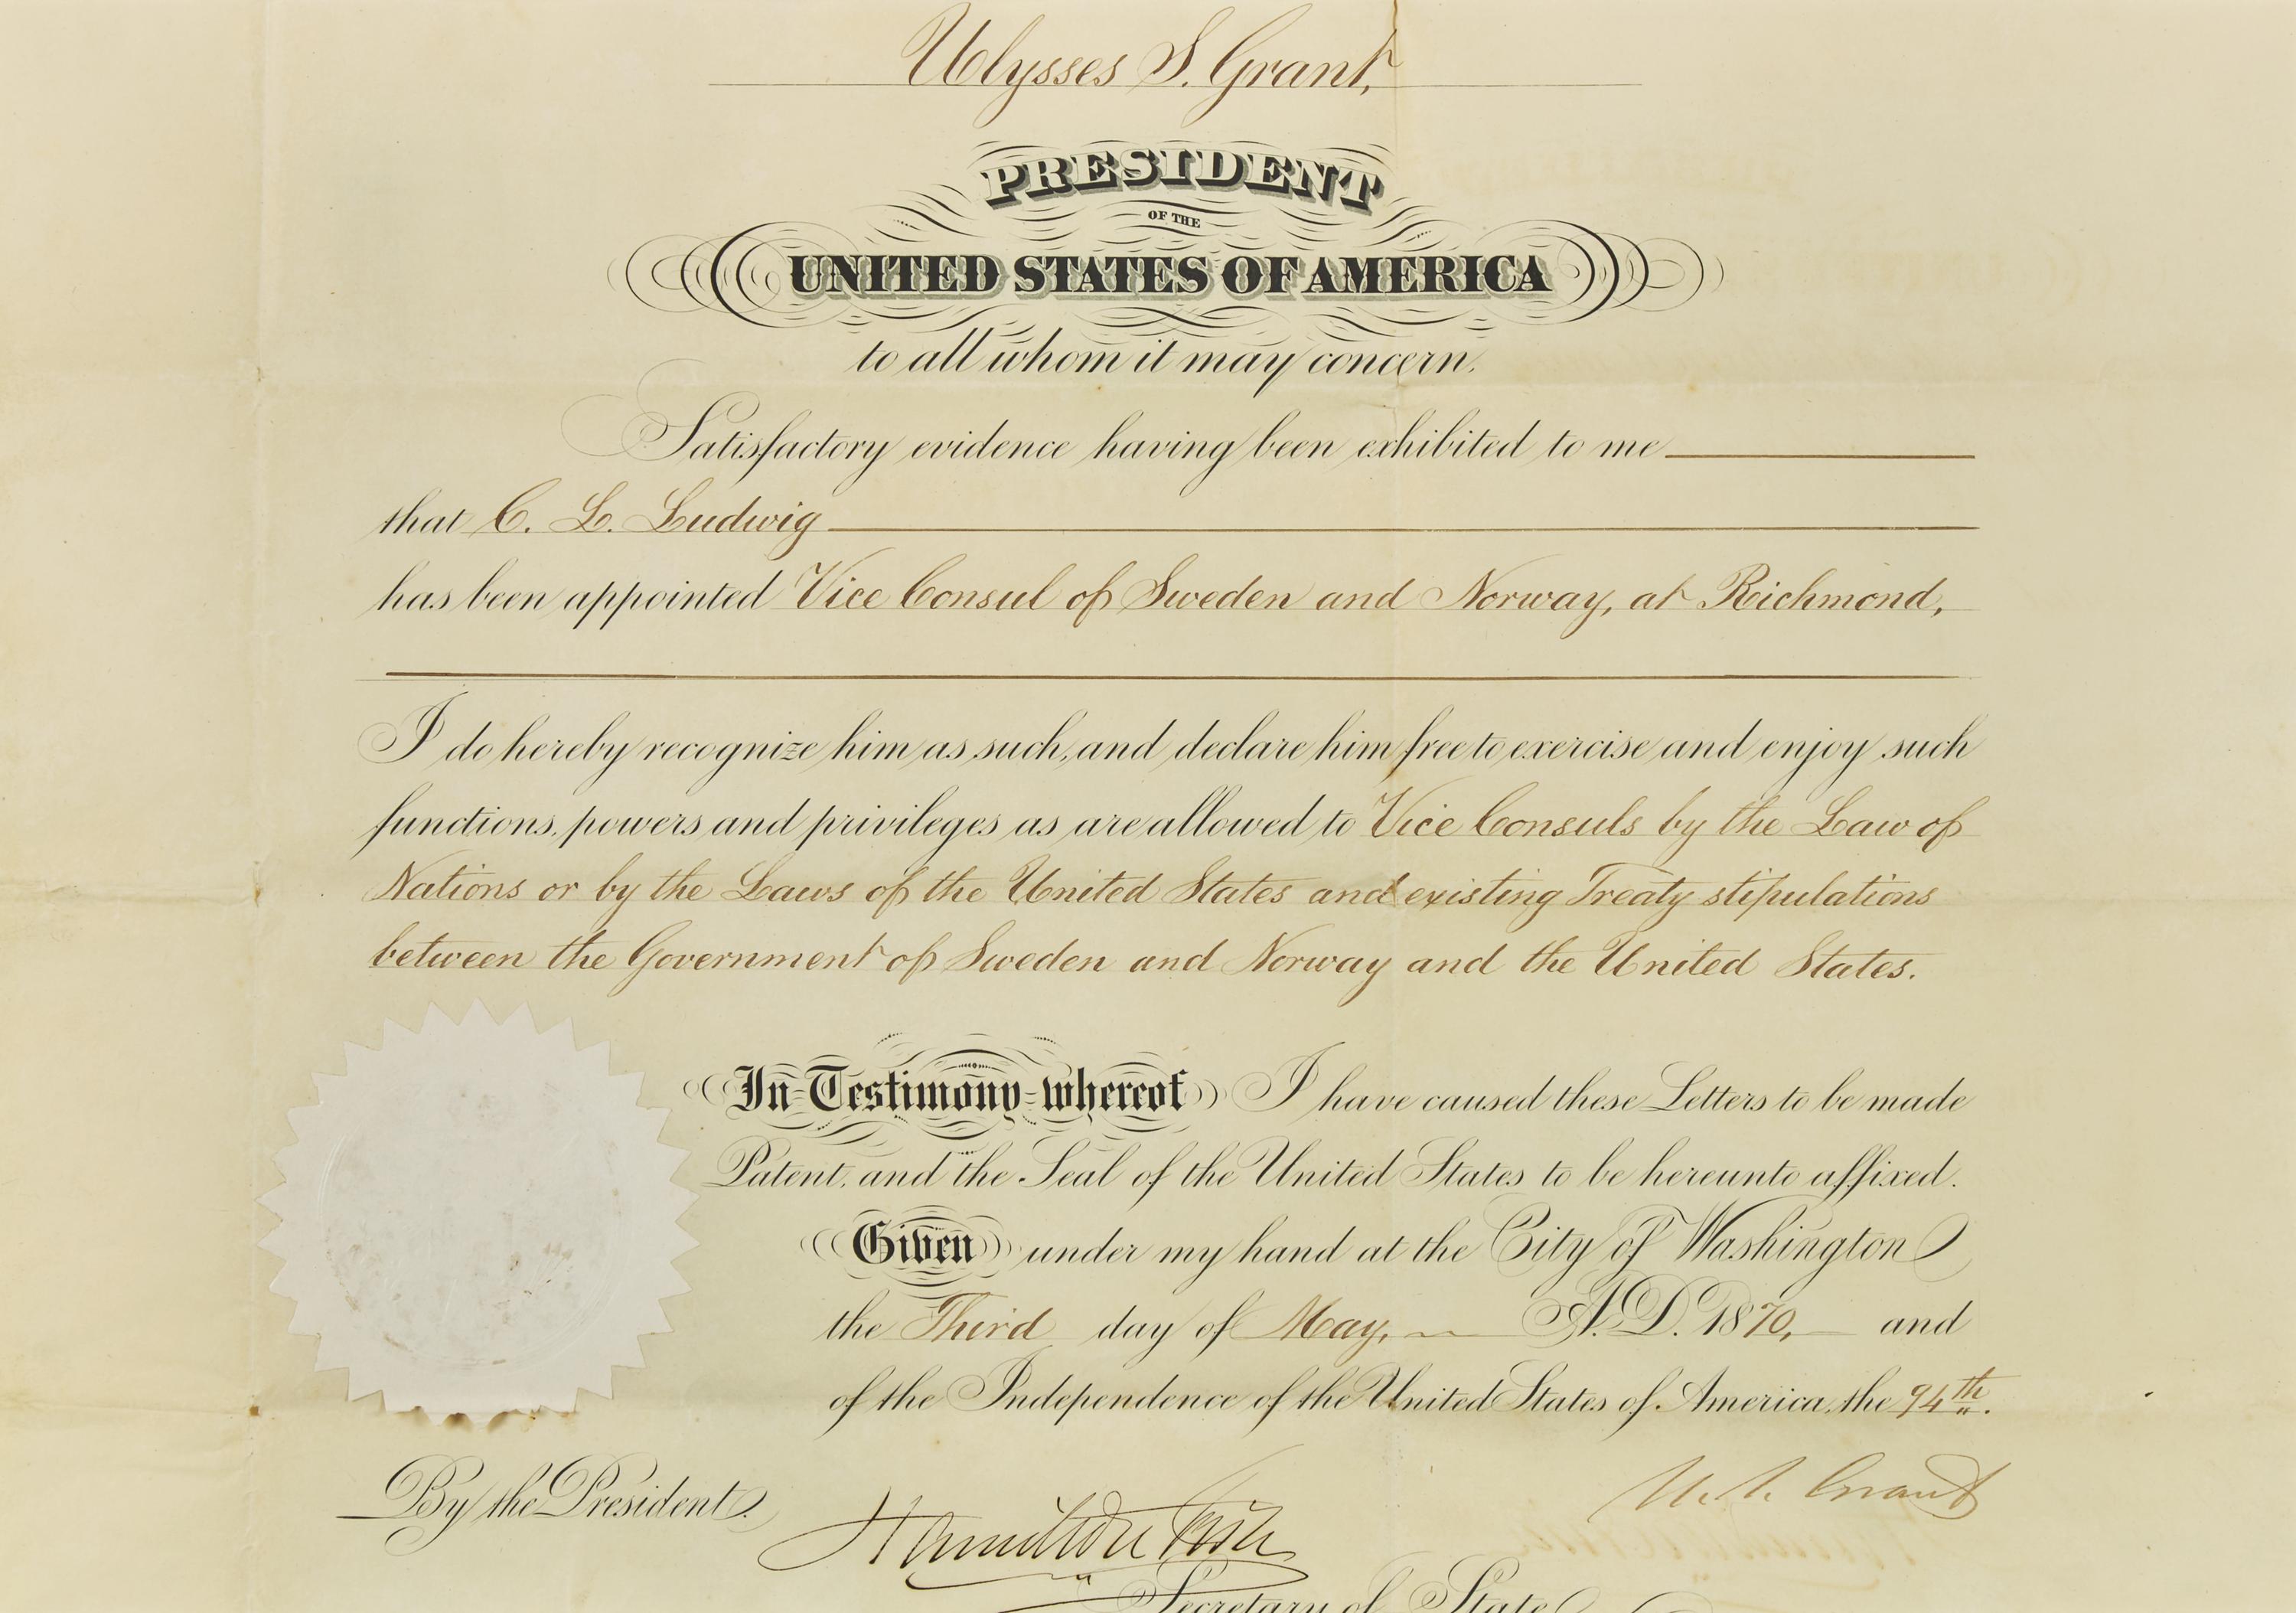 Ulysses S. Grant,
PRESIDENT
OF THE
UNITED STATES OF AMERICA
to all whom it may concern.
Satisfactory evidence having been exhibited to me
that C. L. Ludwig
has been appointed Vice Consul of Sweden and Norway, at Richmond,
I do hereby recognize him as such, and declare him free to exercise and enjoy such
functions, powers and privileges as are allowed to Vice Consuls by the Law of
Nations or by the Laws of the United States and existing Treaty stipulations
between the Government of Sweden and Norway and the United States.
In Testimony whereof I have caused these Letters to be made
Patent, and the Seal of the United States to be hereunto affixed.
Given under my hand at the City of Washington
the Third day of May, A.D. 1870, and
of the Independence of the United States of America, the 94th.
By the President.
U. S. Grant
Hamilton Fish
Secretary of State